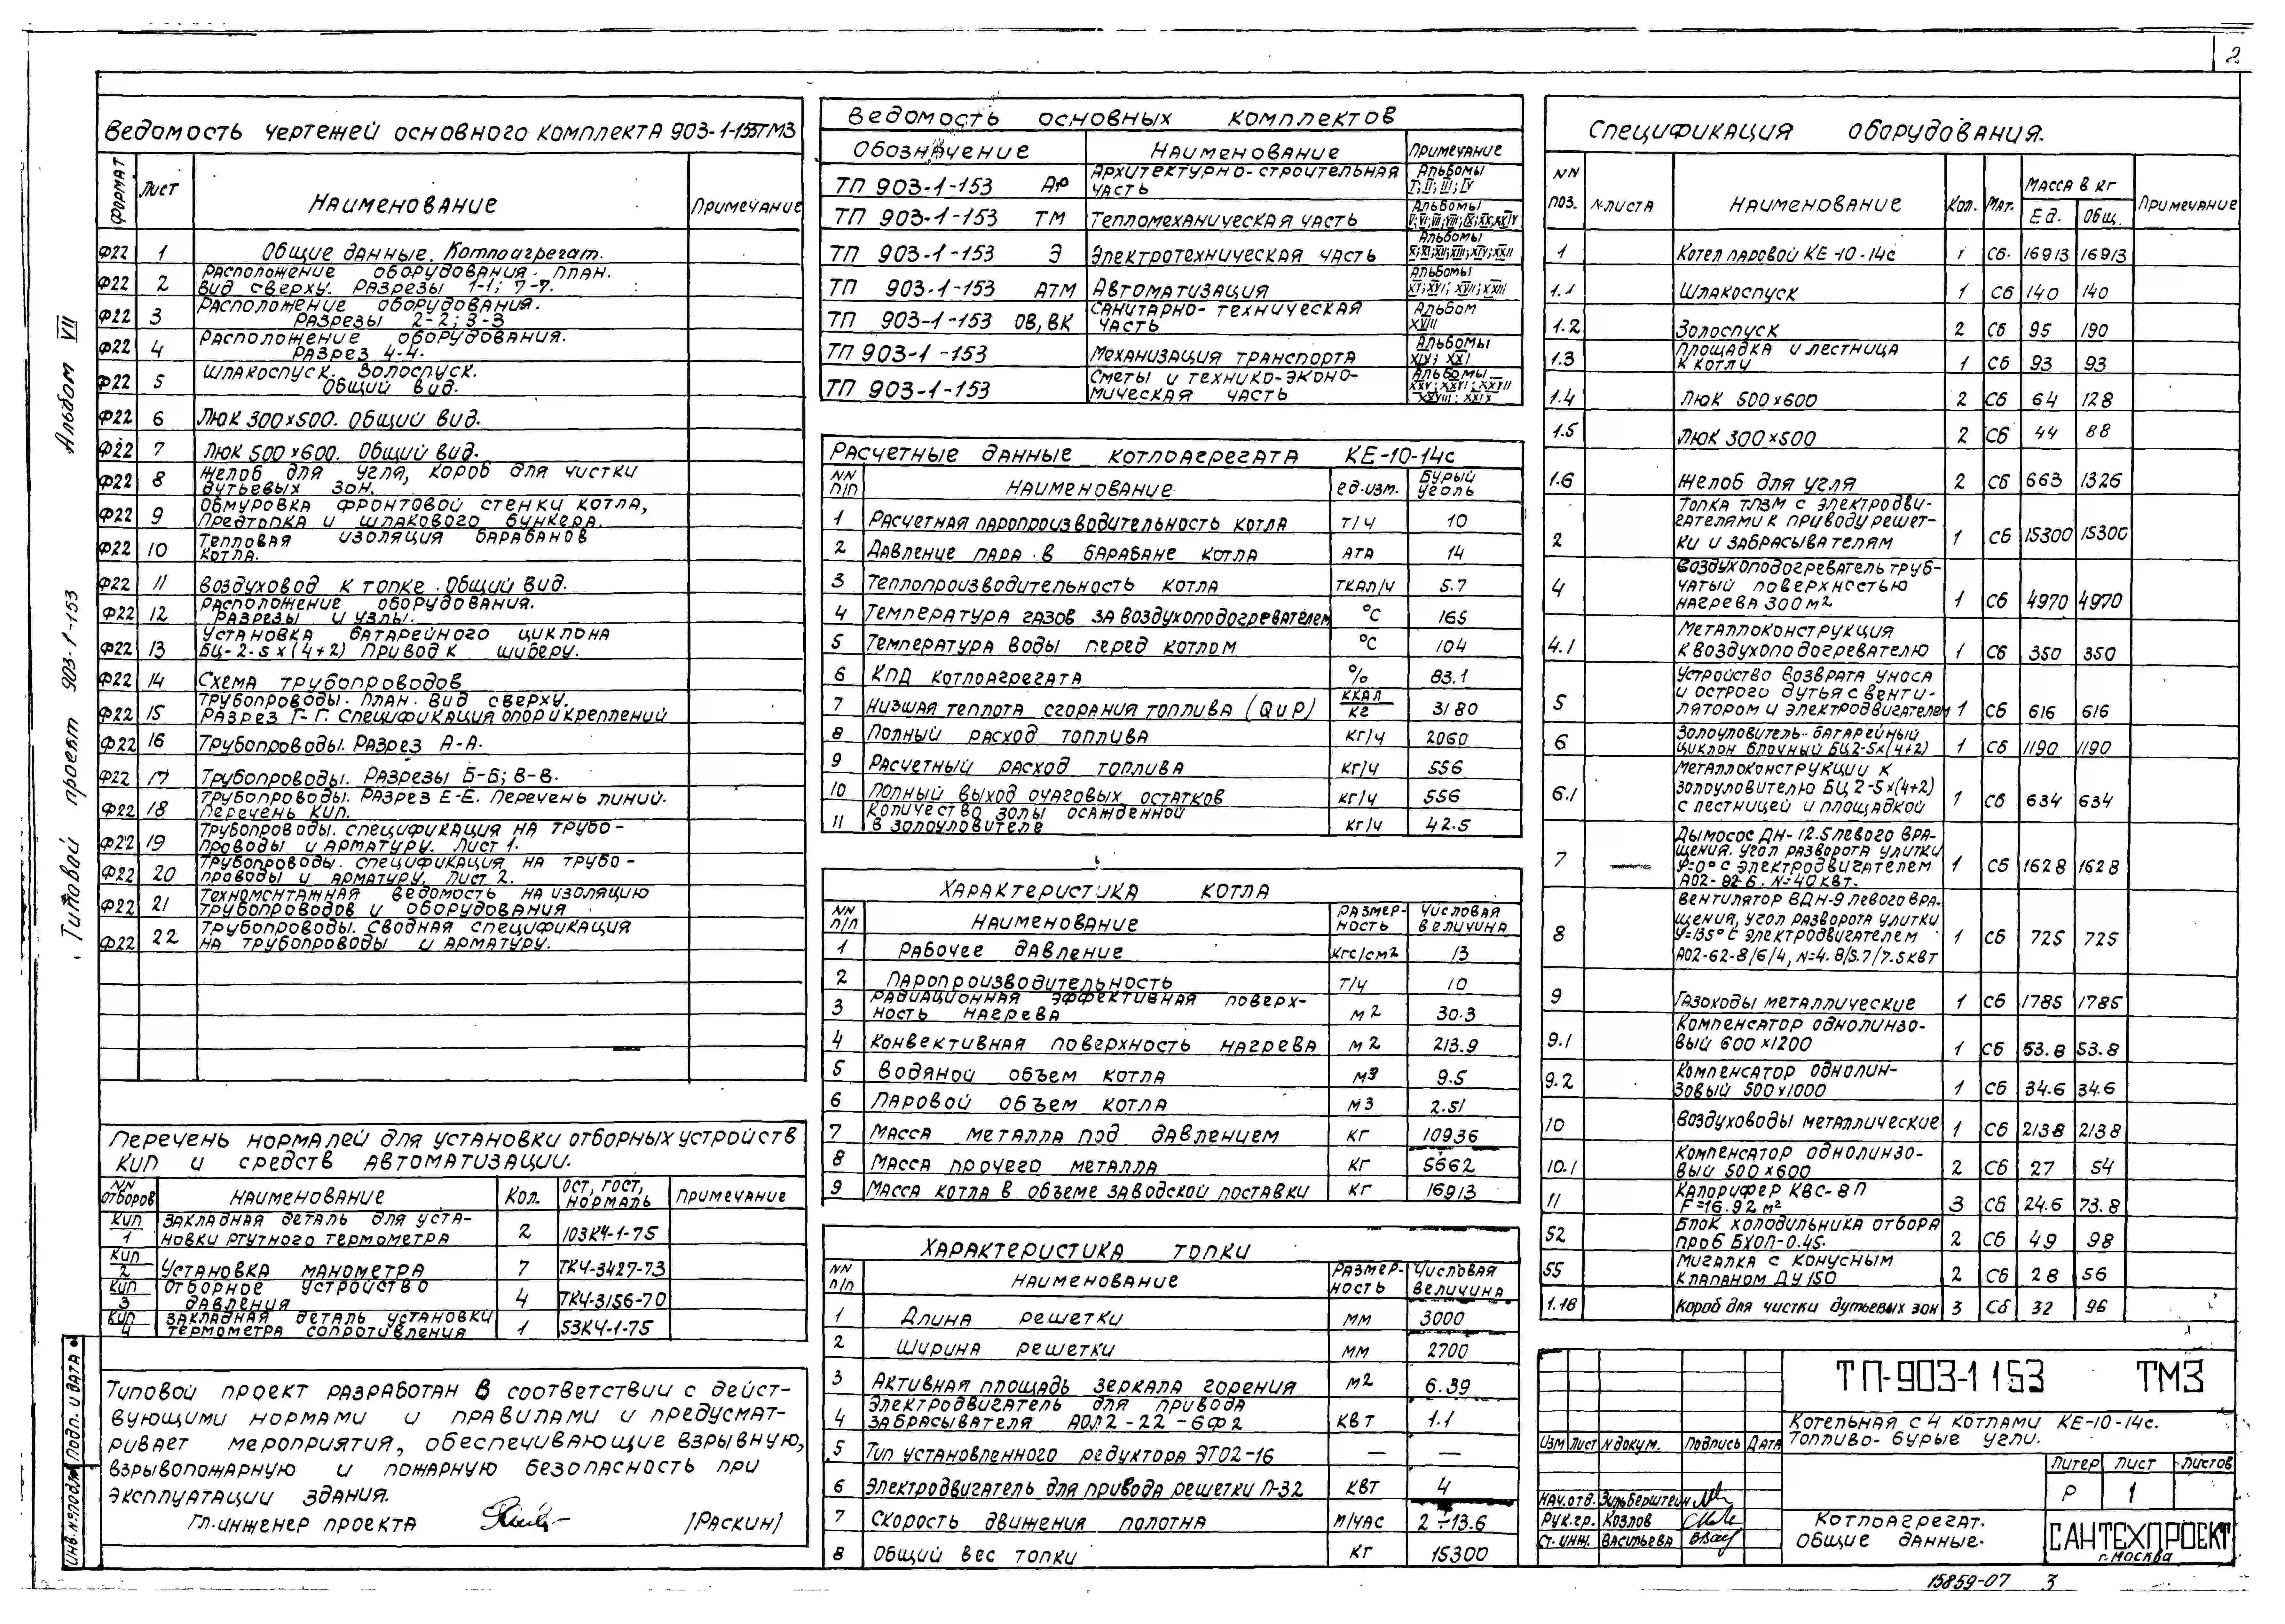 2
Альбом VII
Типовой проект 903-1-153
Инв.№подл. Подп. и дата
Ведомость чертежей основного комплекта 903-1-153ТМ3
Формат Лист Наименование Примечание
Ф22 1 Общие данные. Котлоагрегат.
Ф22 2 Расположение оборудования. План.
Вид сверху. Разрезы 1-1; 7-7.
Ф22 3 Расположение оборудования.
Разрезы 2-2; 3-3
Ф22 4 Расположение оборудования.
Разрез 4-4.
Ф22 5 Шлакоспуск. Золоспуск.
Общий вид.
Ф22 6 Люк 300х500. Общий вид.
Ф22 7 Люк 500х600. Общий вид.
Ф22 8 Желоб для угля, короб для чистки
дутьевых зон.
Ф22 9 Обмуровка фронтовой стенки котла,
предтопка и шлакового бункера.
Ф22 10 Тепловая изоляция барабанов
котла.
Ф22 11 Воздуховод к топке. Общий вид.
Ф22 12 Расположение оборудования.
Разрезы и узлы.
Ф22 13 Установка батарейного циклона
БЦ-2-5х(4+2) Привод к шиберу.
Ф22 14 Схема трубопроводов
Ф22 15 Трубопроводы. План. Вид сверху.
Разрез Г-Г. Спецификация опор и креплений
Ф22 16 Трубопроводы. Разрез А-А.
Ф22 17 Трубопроводы. Разрезы Б-Б; В-В.
Ф22 18 Трубопроводы. Разрез Е-Е. Перечень линий.
Перечень КИП.
Ф22 19 Трубопроводы. Спецификация на трубо-
проводы и арматуру. Лист 1.
Ф22 20 Трубопроводы. Спецификация на трубо-
проводы и арматуру. Лист 2.
Ф22 21 Техномонтажная ведомость на изоляцию
трубопроводов и оборудования
Ф22 22 Трубопроводы. Сводная спецификация
на трубопроводы и арматуру.
Перечень нормалей для установки отборных устройств
КИП и средств автоматизации.
NN отборов Наименование Кол. ОСТ, ГОСТ, нормаль Примечание
КИП 1 Закладная деталь для уста-
новки ртутного термометра 2 103К4-1-75
КИП 2 Установка манометра 7 ТК4-3427-73
КИП 3 Отборное устройство
давления 4 ТК4-3156-70
КИП 4 Закладная деталь установки
термометра сопротивления 1 53К4-1-75
Типовой проект разработан в соответствии с дейст-
вующими нормами и правилами и предусмат-
ривает мероприятия, обеспечивающие взрывную,
взрывопожарную и пожарную безопасность при
эксплуатации здания.
Гл.инженер проекта /Раскин/
Ведомость основных комплектов
Обозначение Наименование Примечание
ТП 903-1-153 АР Архитектурно-строительная
часть Альбомы I; II; III; IV
ТП 903-1-153 ТМ Тепломеханическая часть Альбомы
ТП 903-1-153 Э Электротехническая часть Альбомы
ТП 903-1-153 АТМ Автоматизация Альбомы
ТП 903-1-153 ОВ,ВК Санитарно-техническая
часть Альбом XVIII
ТП 903-1-153 Механизация транспорта Альбомы XIX; XXI
ТП 903-1-153 Сметы и технико-эконо-
мическая часть Альбомы XXV; XXVI; XXVII XXVIII; XXIX
Расчетные данные котлоагрегата КЕ-10-14с
NN п/п Наименование ед.изм. Бурый уголь
1 Расчетная паропроизводительность котла т/ч 10
2 Давление пара в барабане котла ата 14
3 Теплопроизводительность котла ткал/ч 5.7
4 Температура газов за воздухоподогревателем °С 165
5 Температура воды перед котлом °С 104
6 КПД котлоагрегата % 83.1
7 Низшая теплота сгорания топлива (QнР) ккал/кг 3180
8 Полный расход топлива кг/ч 2060
9 Расчетный расход топлива кг/ч 556
10 Полный выход очаговых остатков кг/ч 556
11 Количество золы осажденной
в золоуловителе кг/ч 42.5
Характеристика котла
NN п/п Наименование Размер-ность Числовая величина
1 Рабочее давление кгс/см2 13
2 Паропроизводительность т/ч 10
3 Радиационная эффективная поверх-
ность нагрева м2 30.3
4 Конвективная поверхность нагрева м2 213.9
5 Водяной объем котла м3 9.5
6 Паровой объем котла м3 2.51
7 Масса металла под давлением кг 10936
8 Масса прочего металла кг 5662
9 Масса котла в объеме заводской поставки кг 16913
Характеристика топки
NN п/п Наименование Размер-ность Числовая величина
1 Длина решетки мм 3000
2 Ширина решетки мм 2700
3 Активная площадь зеркала горения м2 6.39
4 Электродвигатель для привода
забрасывателя АОЛ2-22-6Ф2 квт 1.1
5 Тип установленного редуктора ЭТО2-16 — —
6 Электродвигатель для привода решетки П-32 квт 4
7 Скорость движения полотна м/час 2÷13.6
8 Общий вес топки кг 15300
Спецификация оборудования.
NN поз. N листа Наименование Кол. Мат. Масса в кг Ед. Общ. Примечание
1 Котел паровой КЕ-10-14с 1 Сб. 16913 16913
1.1 Шлакоспуск 1 Сб 140 140
1.2 Золоспуск 2 Сб 95 190
1.3 Площадка и лестница
к котлу 1 Сб 93 93
1.4 Люк 500х600 2 Сб 64 128
1.5 Люк 300х500 2 Сб 44 88
1.6 Желоб для угля 2 Сб 663 1326
2 Топка ТЛЗМ с электродви-
гателями к приводу решет-
ки и забрасывателям 1 Сб 15300 15300
4 Воздухоподогреватель труб-
чатый поверхностью
нагрева 300м2 1 Сб 4970 4970
4.1 Металлоконструкция
к воздухоподогревателю 1 Сб 350 350
5 Устройство возврата уноса
и острого дутья с венти-
лятором и электродвигателем 1 Сб 616 616
6 Золоуловитель-батарейный
циклон блочный БЦ2-5х(4+2) 1 Сб 1190 1190
6.1 Металлоконструкции к
золоуловителю БЦ 2-5х(4+2)
с лестницей и площадкой 1 Сб 634 634
7 — Дымосос ДН-12.5левого вра-
щения. Угол разворота улитки
φ=0° с электродвигателем
АО2-82-6. N=40квт. 1 Сб 1628 1628
8 Вентилятор ВДН-9 левого вра-
щения, угол разворота улитки
φ=135° с электродвигателем
АО2-62-8/6/4, N=4.8/5.7/7.5квт 1 Сб 725 725
9 Газоходы металлические 1 Сб 1785 1785
9.1 Компенсатор однолинзо-
вый 600х1200 1 Сб 53.8 53.8
9.2 Компенсатор однолин-
зовый 500х1000 1 Сб 34.6 34.6
10 Воздуховоды металлические 1 Сб 2138 2138
10.1 Компенсатор однолинзо-
вый 500х600 2 Сб 27 54
11 Калорифер КВС-8П
F=16.92м² 3 Сб 24.6 73.8
52 Блок холодильника отбора
проб БХОП-0.45. 2 Сб 49 98
55 Мигалка с конусным
клапаном ДУ150 2 Сб 28 56
1.18 Короб для чистки дутьевых зон 3 Сб 32 96
ТП-903-1 153 ТМ3
Котельная с 4 котлами КЕ-10-14с.
Топливо-бурые угли.
Изм Лист N докум. Подпись Дата
Литер Лист Листов
Р 1
Нач.отд. Зильберштейн
Рук.гр. Козлов
Ст.инж. Васильева
Котлоагрегат.
Общие данные.
САНТЕХПРОЕКТ
г.Москва
15859-07 3